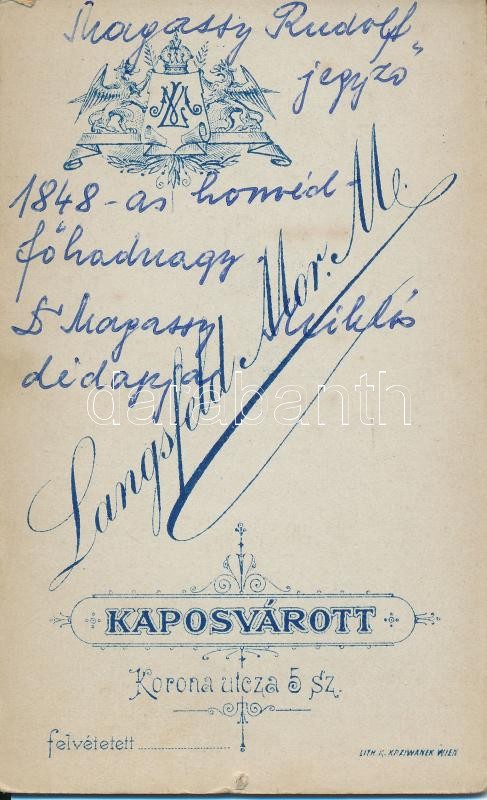 Magassy Rudolf
jegyző
1848-as honvéd
főhadnagy
Dr Magassy Miklós
dédapja
Langsfeld Mór. M.
darabanth
KAPOSVÁROTT
Korona utcza 5 sz.
felvétetett
LITH. K. KRZIWANEK WIEN